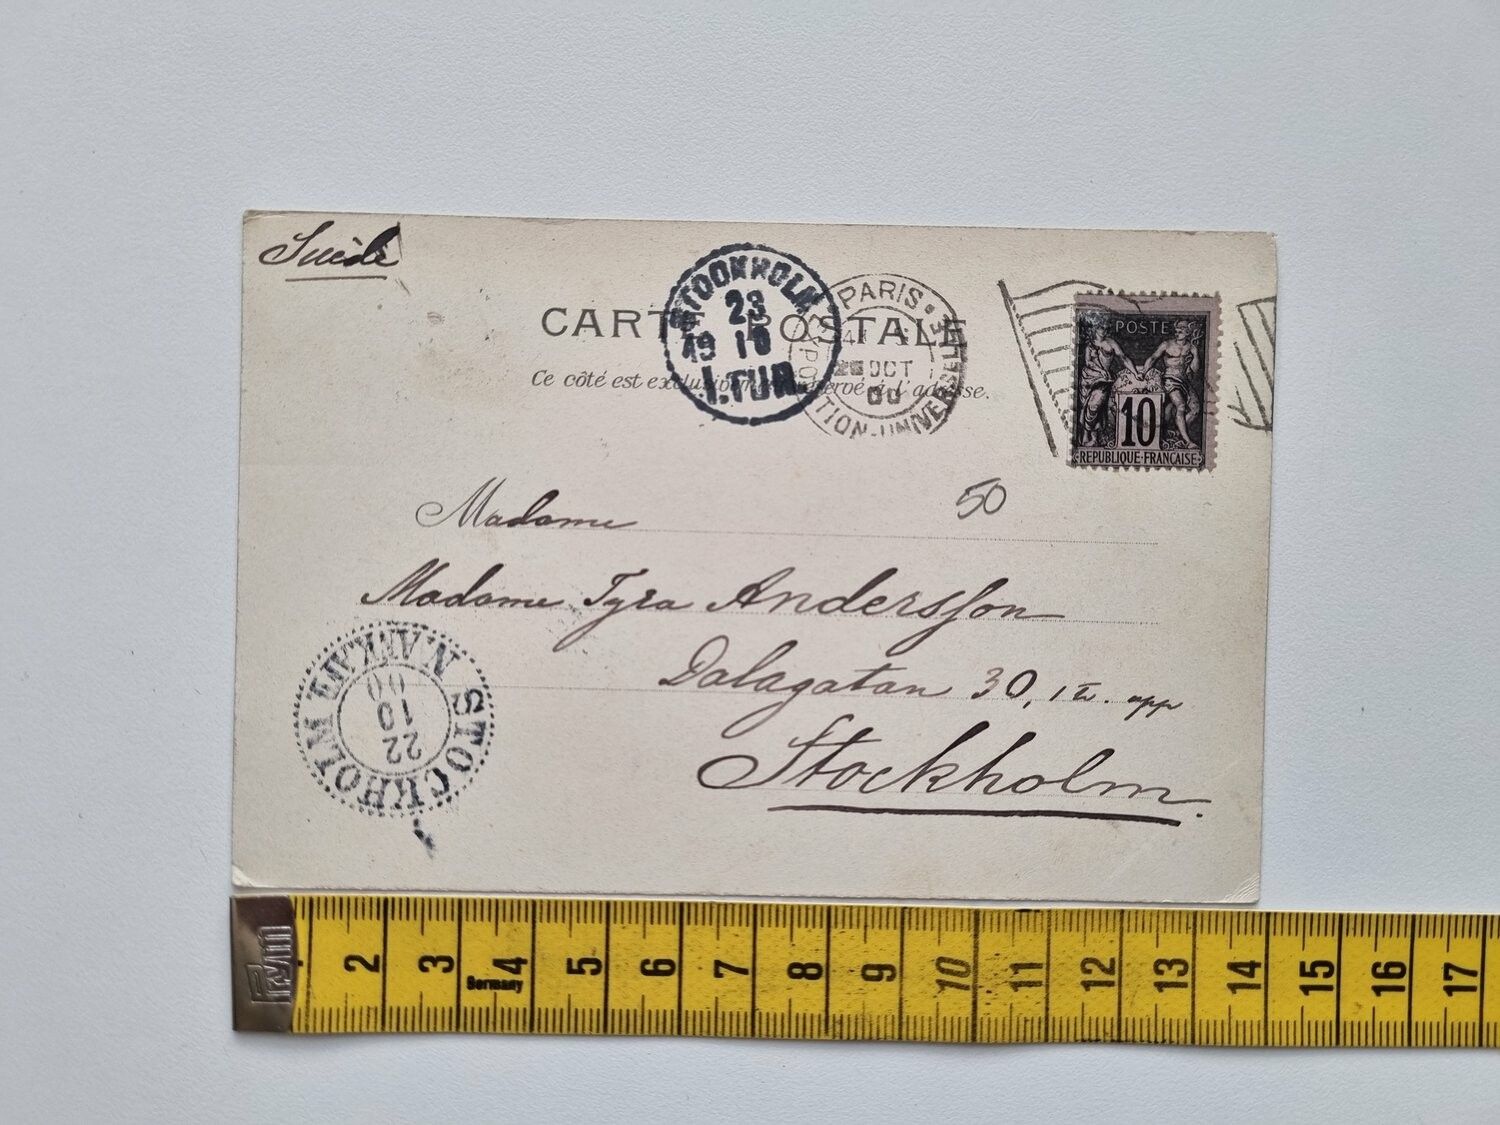 Suède
CARTE POSTALE
Ce côté est exclusivement réservé à l'adresse.
STOCKHOLM
23
10
1.TUR
PARIS
EXPOSITION-UNIVERSELLE
OCT
00
POSTE
10
REPUBLIQUE·FRANCAISE
50
Madame
Madame Tyra Andersson
Dalagatan 30, 1 tr. upp
Stockholm.
STOCKHOLM
22
10
00
2 3 4 5 6 7 8 9 10 11 12 13 14 15 16 17
Germany